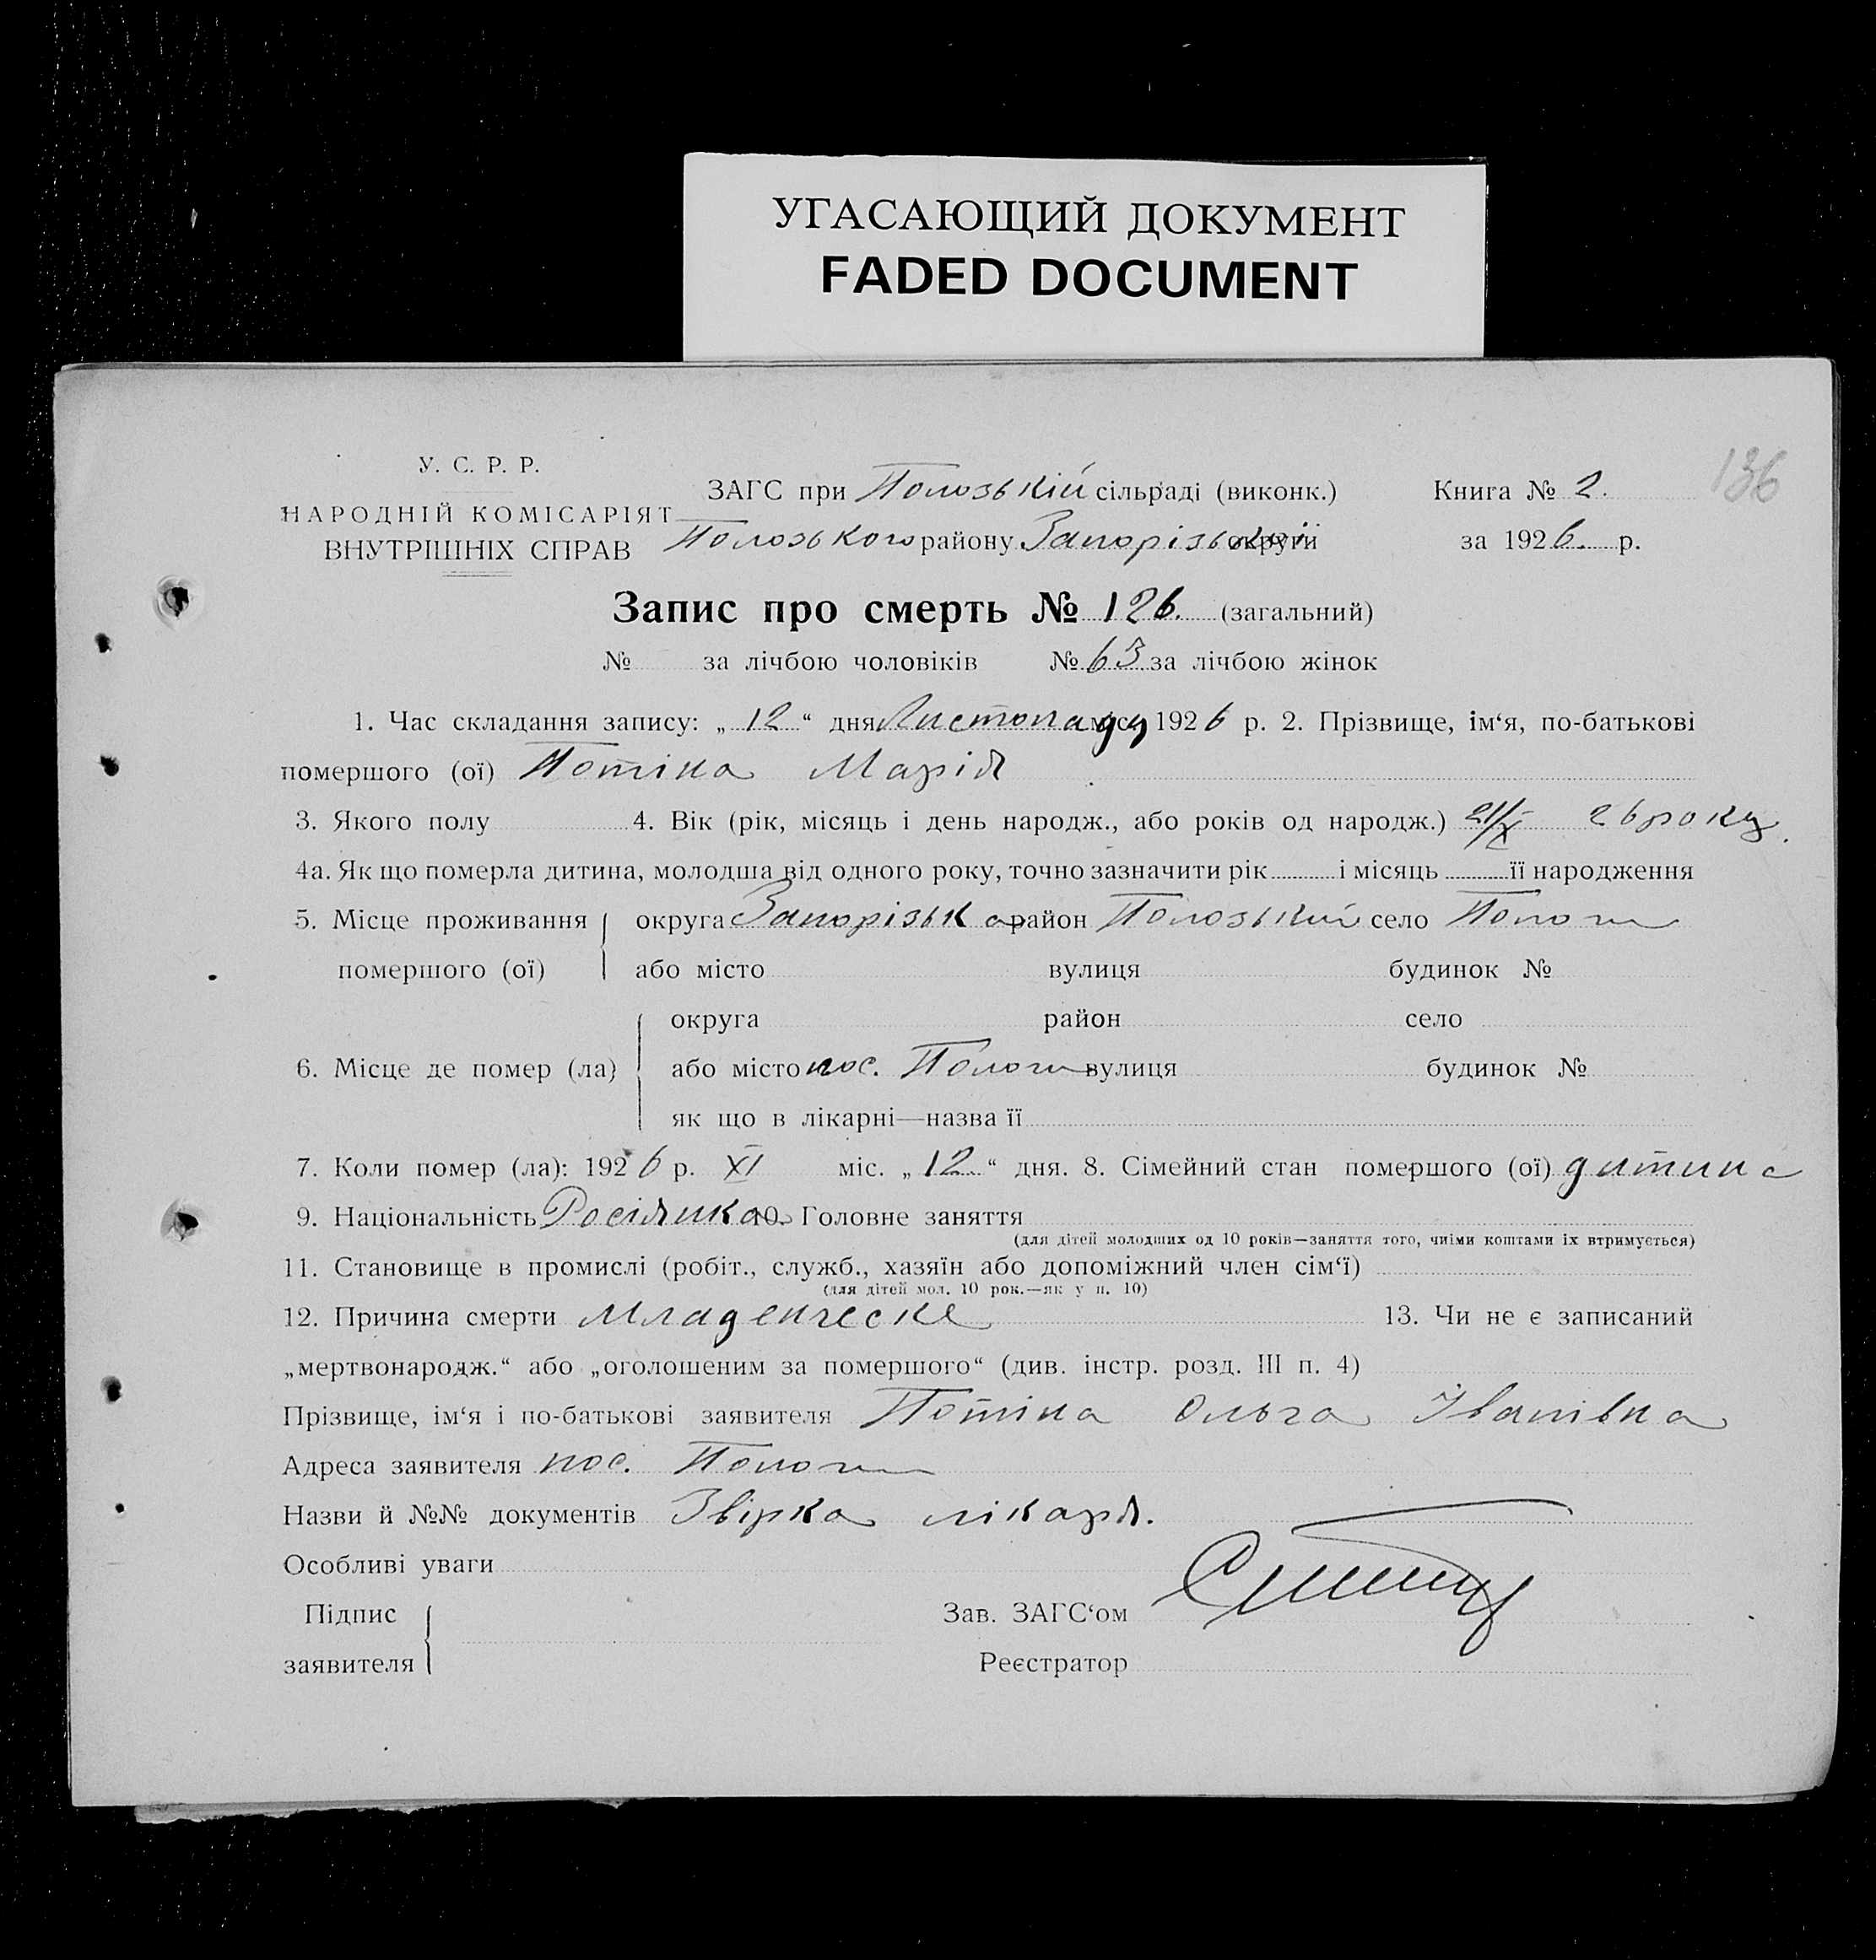 УГАСАЮЩИЙ ДОКУМЕНТ
FADED DOCUMENT
136
У. С. Р. Р.
НАРОДНІЙ КОМІСАРІЯТ
ВНУТРІШНІХ СПРАВ
ЗАГС при Полозькій сільраді (виконк.) Книга № 2.
Полозького району Запорізької округи за 1926. р.
Запис про смерть № 126. (загальний)
№ за лічбою чоловіків № 63 за лічбою жінок
1. Час складання запису: „ 12 “ дня Листопаду міс. 1926 р. 2. Прізвище, ім‘я, по-батькові
помершого (ої) Потіна Марія
3. Якого полу 4. Вік (рік, місяць і день народж., або років од народж.) 21/X 26 року.
4а. Як що померла дитина, молодша від одного року, точно зазначити рік і місяць її народження
5. Місце проживання округа Запорізька район Полозький село Пологи
помершого (ої) або місто вулиця будинок №
округа район село
6. Місце де помер (ла) або місто пос. Пологи вулиця будинок №
як що в лікарні—назва її
7. Коли помер (ла): 1926 р. XI міс. „ 12 “ дня. 8. Сімейний стан помершого (ої) дитина
9. Національність Росіянка 10. Головне заняття
(для дітей молодших од 10 років—заняття того, чиїми коштами їх втримується)
11. Становище в промислі (робіт., служб., хазяїн або допоміжний член сім‘ї)
(для дітей мол. 10 рок.—як у п. 10)
12. Причина смерти Младенческе 13. Чи не є записаний
„мертвонародж.“ або „оголошеним за помершого“ (див. інстр. розд. III п. 4)
Прізвище, ім‘я і по-батькові заявителя Потіна Ольга Іванівна
Адреса заявителя пос. Пологи
Назви й №№ документів Звірка лікаря.
Особливі уваги
Підпис Зав. ЗАГС‘ом
заявителя Реєстратор